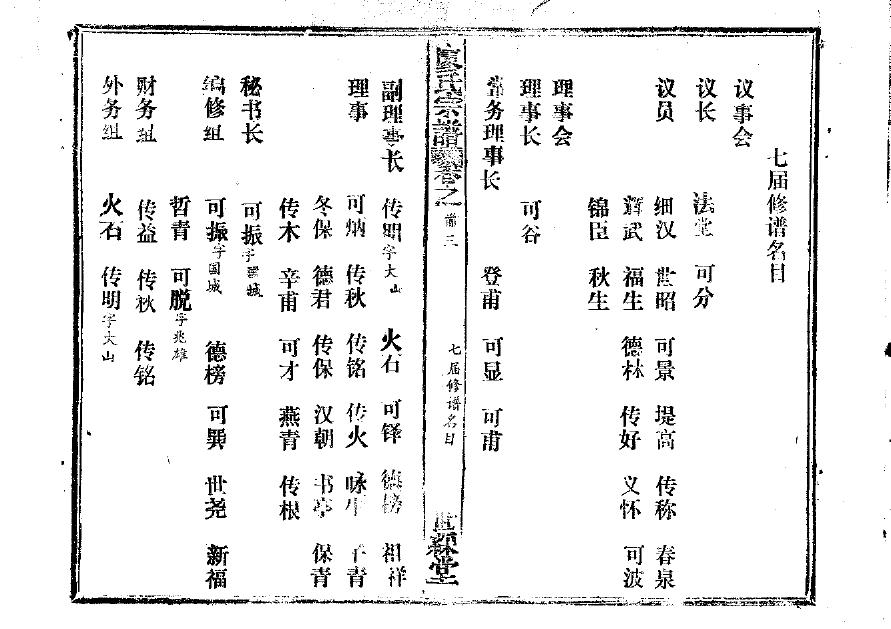 七届修谱名目
议事会
议长 法堂 可分
议员 细汉 世昭 可景 堤高 传称 春泉
辉武 福生 德林 传好 义怀 可波
锦臣 秋生
理事会
理事长 可谷
常务理事长 登甫 可显 可甫
氏宗谱 卷之一 首三 七届修谱名目 世 堂
副理事长 传明字大山 火石 可铎 德榜 祖祥
理事 可炳 传秋 传铭 传火 咏 青
冬保 德君 传保 汉朝 书亭 保青
传木 辛甫 可才 燕青 传根
秘书长 可振字国城
编修组 可振字国城 德榜 可巽 世尧 新福
哲青 可脱字兆雄
财务组 传益 传秋 传铭
外务组 火石 传明字大山